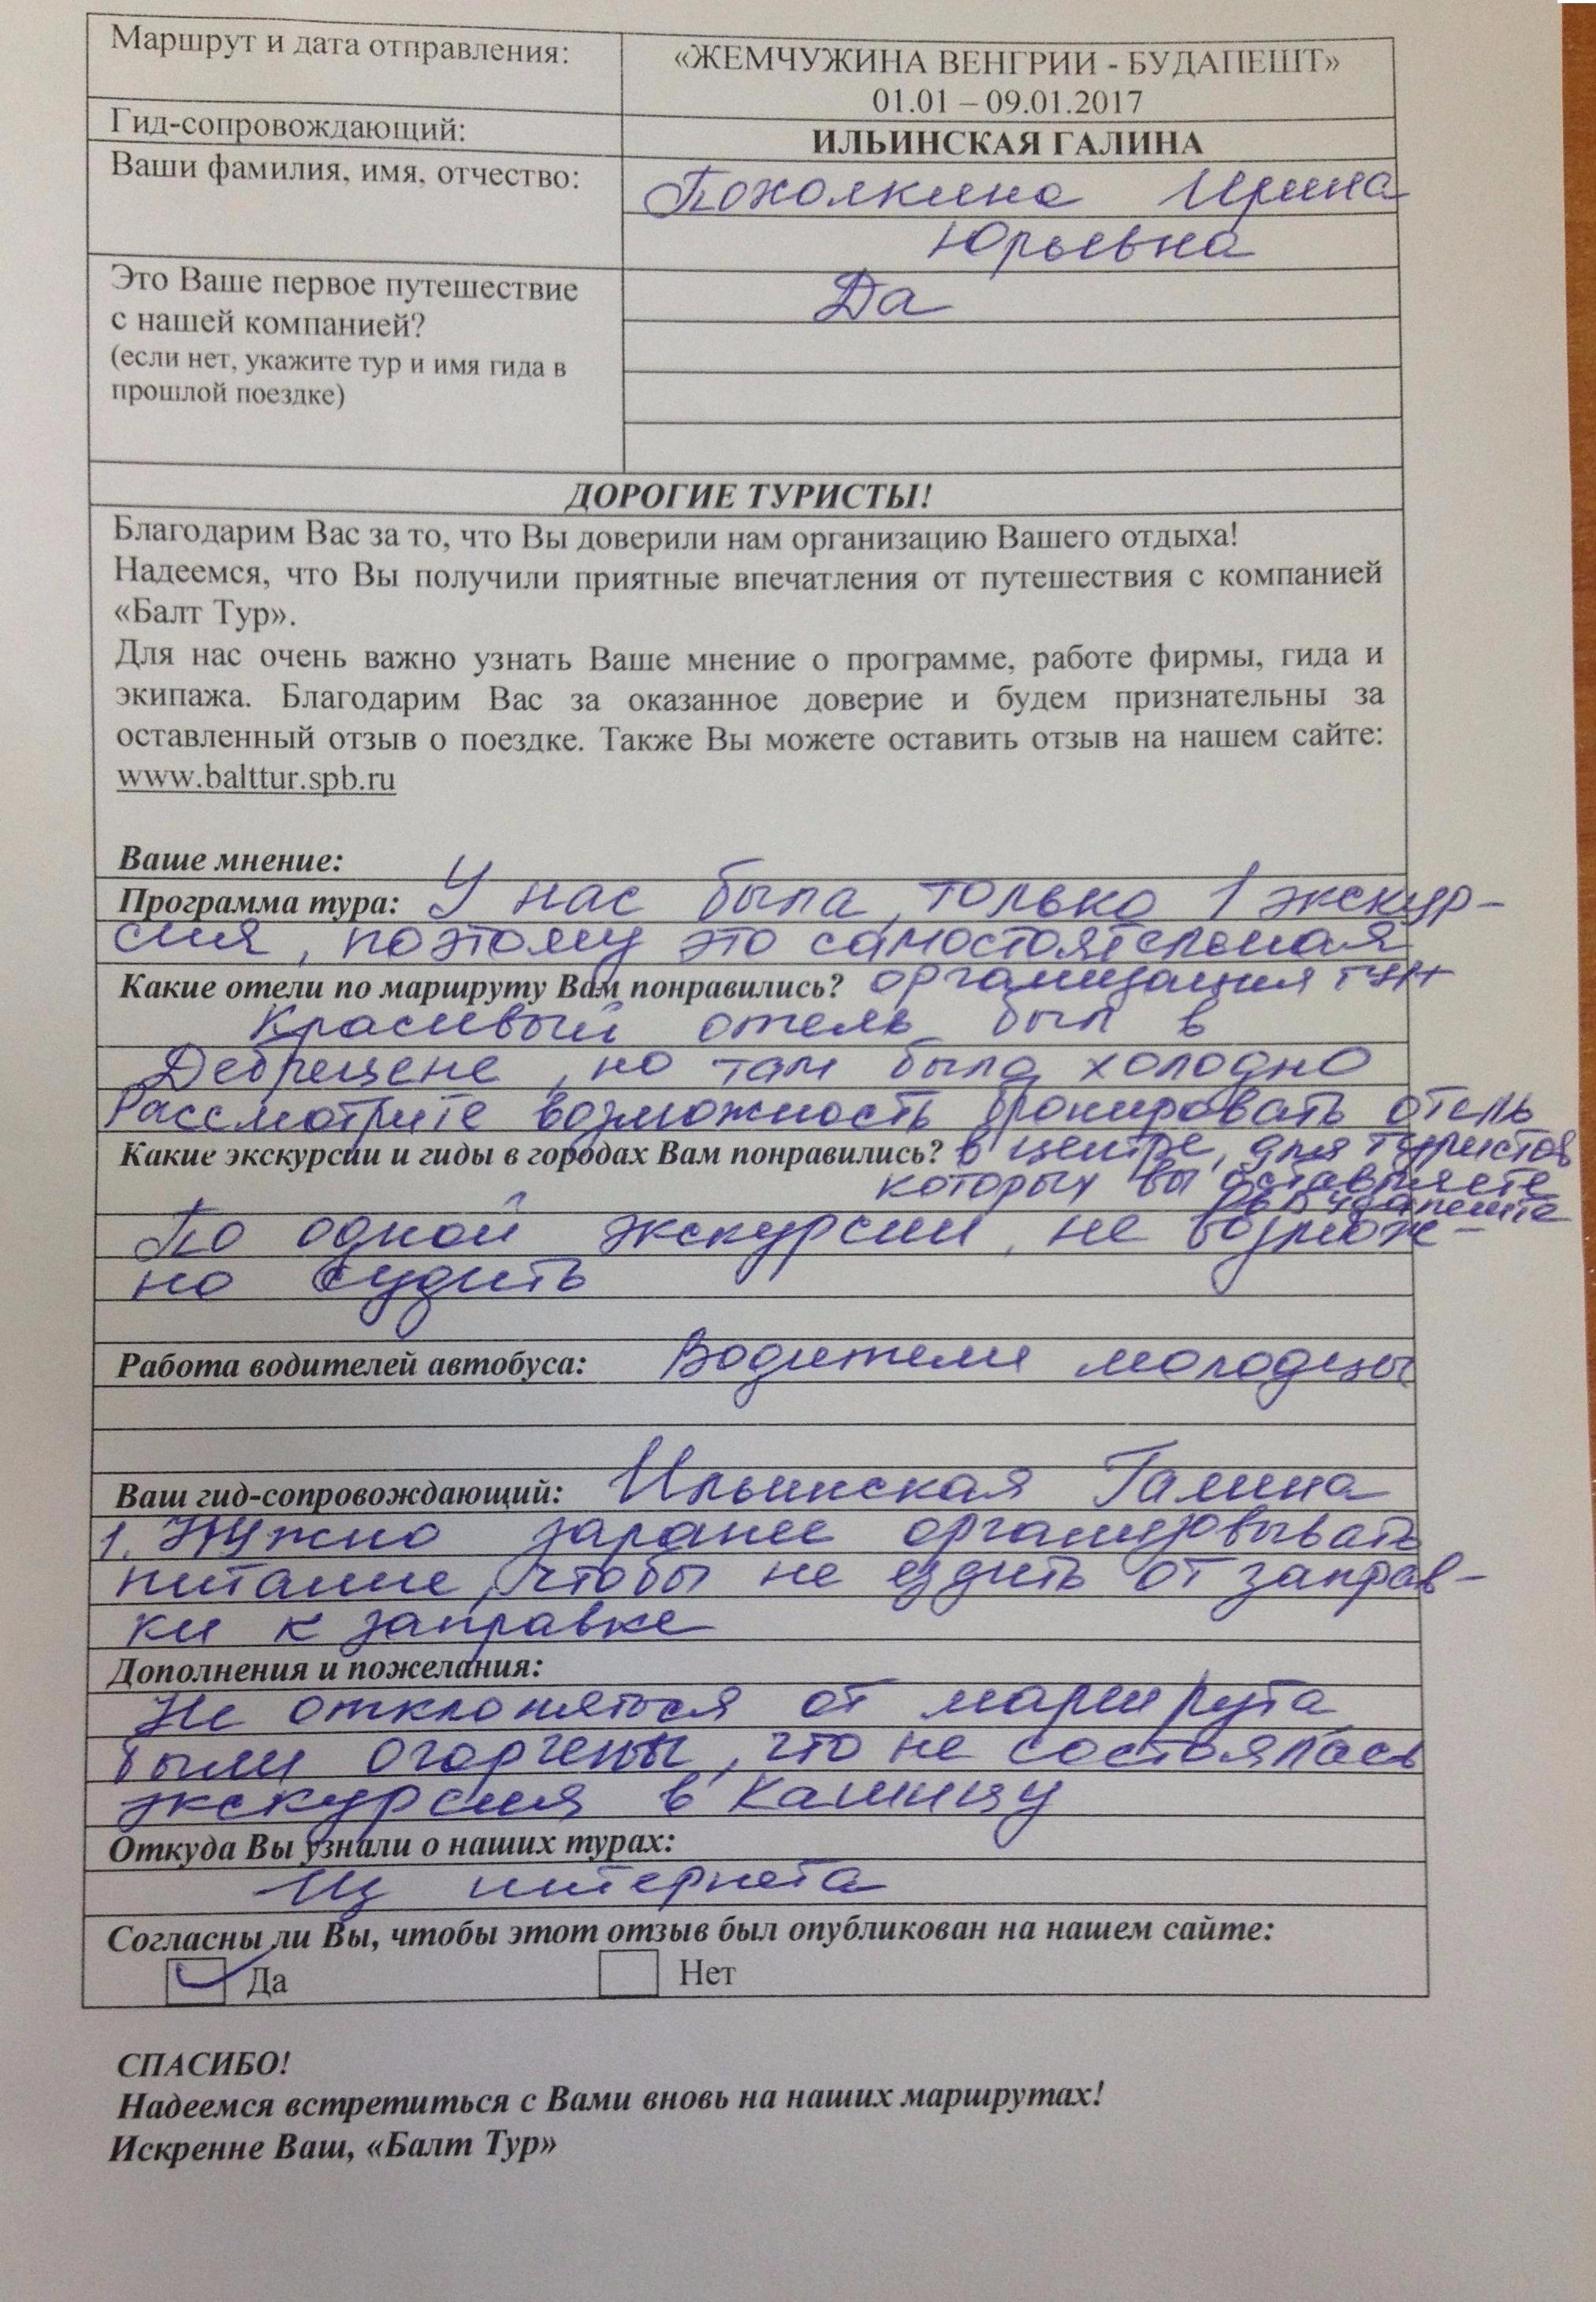 Маршрут и дата отправления:
«ЖЕМЧУЖИНА ВЕНГРИИ - БУДАПЕШТ»
01.01 – 09.01.2017
Гид-сопровождающий:
ИЛЬИНСКАЯ ГАЛИНА
Ваши фамилия, имя, отчество:
Похолкина Ирина
Юрьевна
Это Ваше первое путешествие
с нашей компанией?
(если нет, укажите тур и имя гида в
прошлой поездке)
Да
ДОРОГИЕ ТУРИСТЫ!
Благодарим Вас за то, что Вы доверили нам организацию Вашего отдыха!
Надеемся, что Вы получили приятные впечатления от путешествия с компанией
«Балт Тур».
Для нас очень важно узнать Ваше мнение о программе, работе фирмы, гида и
экипажа. Благодарим Вас за оказанное доверие и будем признательны за
оставленный отзыв о поездке. Также Вы можете оставить отзыв на нашем сайте:
www.balttur.spb.ru
Ваше мнение:
Программа тура: У нас была, только 1 экскур-
сия, поэтому это самостоятельная
Какие отели по маршруту Вам понравились? организация
Красивый отель был в
Дебрецене, но там было холодно
Рассмотрите возможность бронировать отель
Какие экскурсии и гиды в городах Вам понравились? в центре, для туристов
которых вы оставляете
в Будапеште
По одной экскурсии, не возмож-
но судить
Работа водителей автобуса: Водители молодцы
Ваш гид-сопровождающий: Ильинская Галина
1. Нужно заранее организовывать
питание, чтобы не ездить от заправ-
ки к заправке
Дополнения и пожелания:
Не отклоняться от маршрута
были огорчены, что не состоялась
экскурсия в Кашицу
Откуда Вы узнали о наших турах:
Из интернета
Согласны ли Вы, чтобы этот отзыв был опубликован на нашем сайте:
Да Нет
СПАСИБО!
Надеемся встретиться с Вами вновь на наших маршрутах!
Искренне Ваш, «Балт Тур»